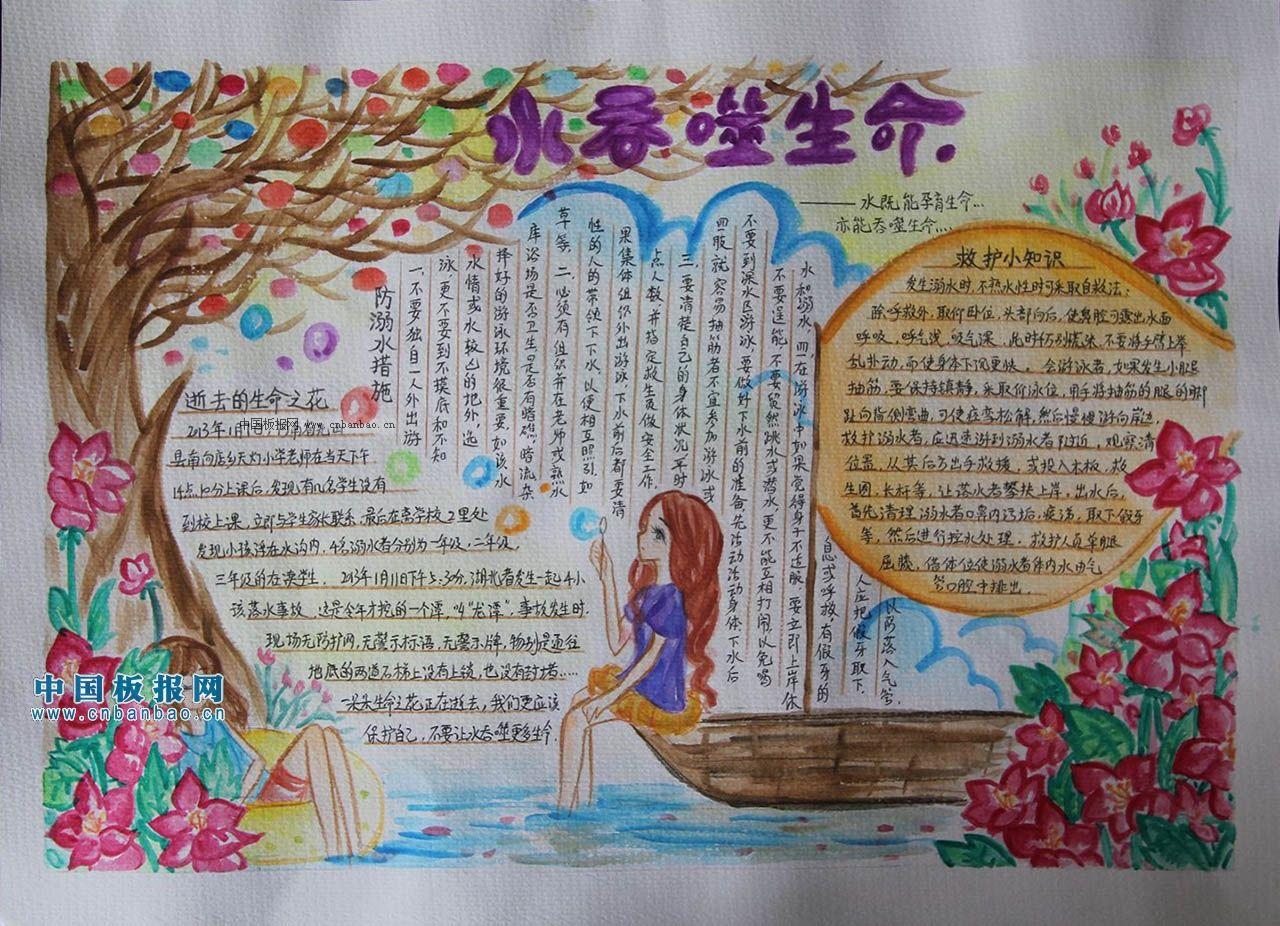 水吞噬生命.
——水既能孕育生命...
亦能吞噬生命....
逝去的生命之花
中国板报网 www.cnbanbao.cn
县南向店乡天灯小学老师在当天下午
14点10分上课后,发现有几名学生没有
到校上课,立即与学生家长联系.最后在离学校2里处
发现小孩浮在水沟内,4名溺水者分别为一年级,二年级,
三年级的在读学生. 2013年1月11日下午5:30分,湖北省发生一起4小
孩落水事故 这是今年才挖的一个潭,叫“龙潭”.事故发生时.
现场无防护网,无警示标语,无警示牌,特别是通往
地底的两道石梯上没有上锁,也没有封堵.....
一朵朵生命之花正在逝去,我们更应该
保护自己,不要让水吞噬更多生命.
防溺水措施
一.不要独自一人外出游
泳,更不要到不摸底和不知
水情或水较凶的地外,选
择好的游泳环境很重要.如该水
库浴场是否卫生,是否有暗礁.暗流.杂
草等. 二.必须有组织并在老师或熟水
性的人的带领下下水.以便相互照引.如
果集体组织外出游泳,下水前后都要清
点人数,并指定救生员做安全工作.
三.要清楚自己的身体状况,平时
四肢就容易抽筋者不宜参加游泳或
不要到深水区游泳.要做好下水前的准备,先活动活动身体下水后
不要逞能,不要贸然跳水或潜水,更不能互相打闹,以免喝
水和溺水.四.在游泳中如果觉得身子不适服.要立即上岸休
息或呼救,有假牙的
人应把假牙取下.
以防落入气管.
救护小知识
发生溺水时,不熟水性时可采取自救法:
除呼救外,取仰卧位,头部向后,使鼻腔可露出水面
呼吸.呼气浅,吸气深.此时千万别慌张,不要将手臂上举
乱扑动,而使身体下沉更快。会游泳者,如果发生小腿
抽筋,要保持镇静,采取仰泳位,用手将抽筋的腿的脚
趾向背侧弯曲,可使痉挛松解,然后慢慢游向岸边,
救护溺水者,应迅速游到溺水者附近,观察清
位置,从其后方出手救援.或投入木板,救
生圈,长杆等,让落水者攀扶上岸,出水后,
首先清理溺水者口鼻内污垢,痰涕,取下假牙
等,然后进行控水处理. 救护人员单腿
屈膝,借体位使溺水者体内水由气
管口腔中排出.
中国板报网
www.cnbanbao.cn